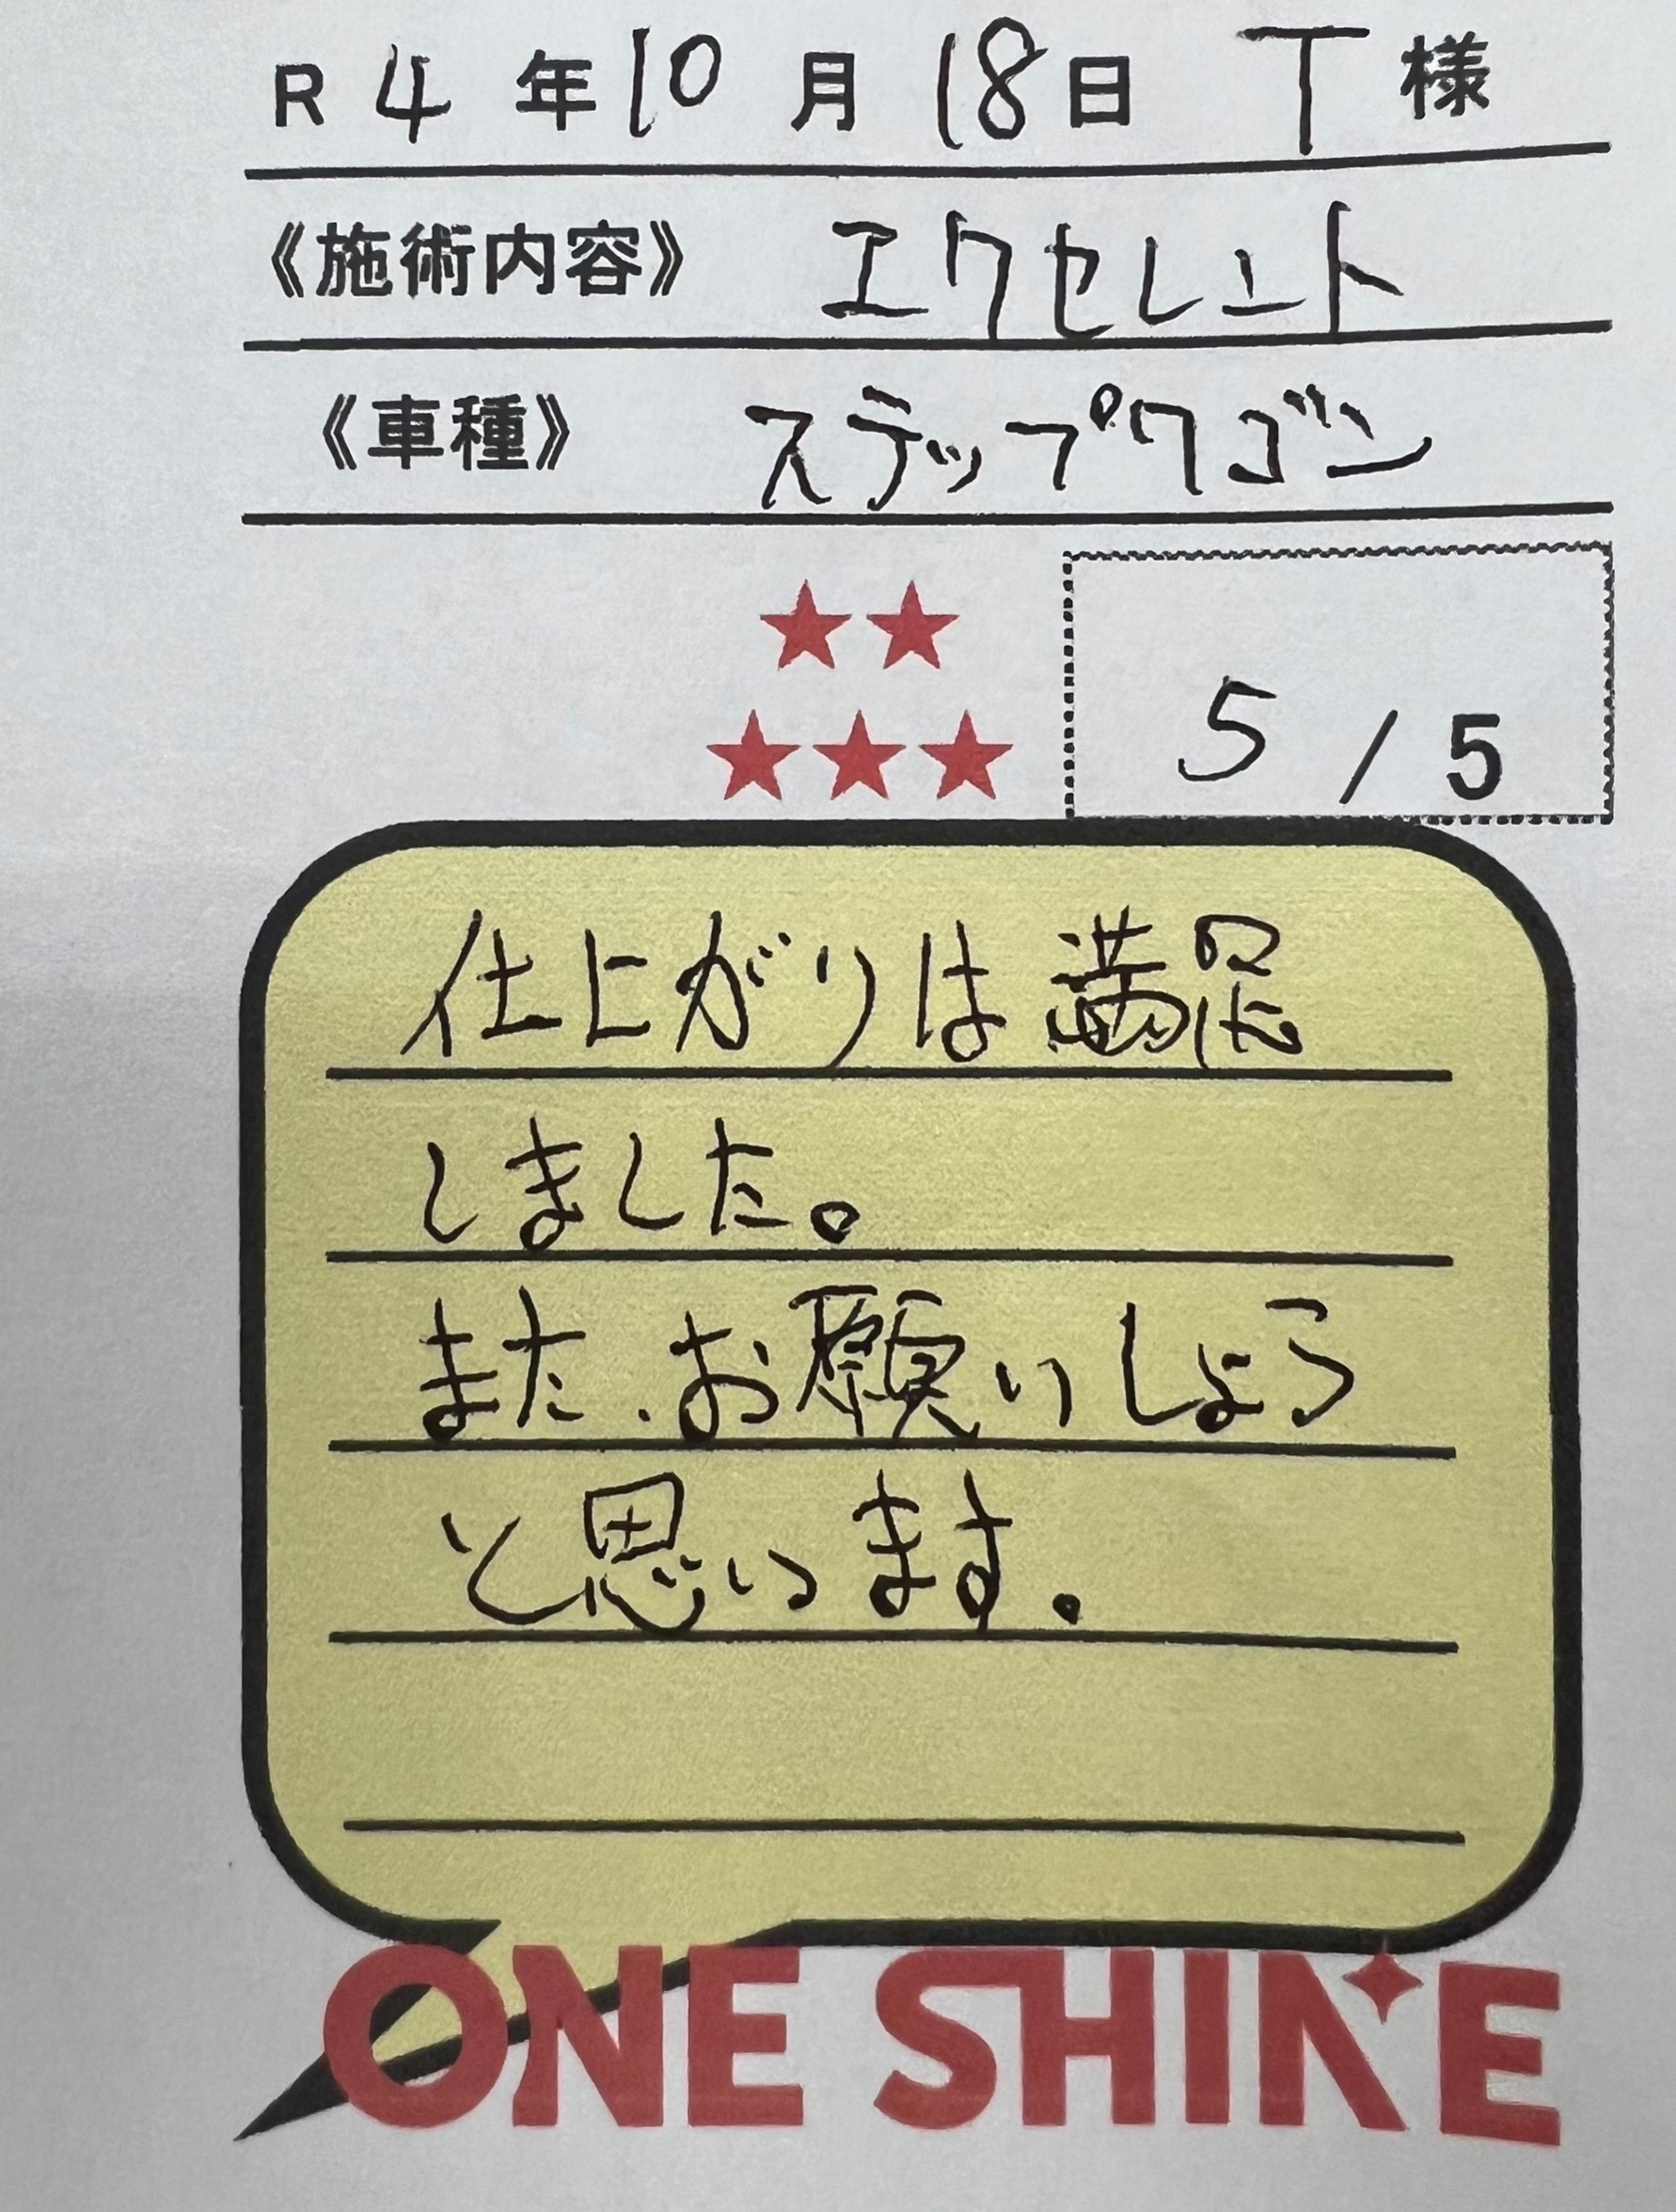 R4年10月18日 T様
《施術内容》 エクセレント
《車種》 ステップワゴン
★★
★★★
5/5
仕上がりは満足
しました。
また、お願いしよう
と思います。
ONE SHINE